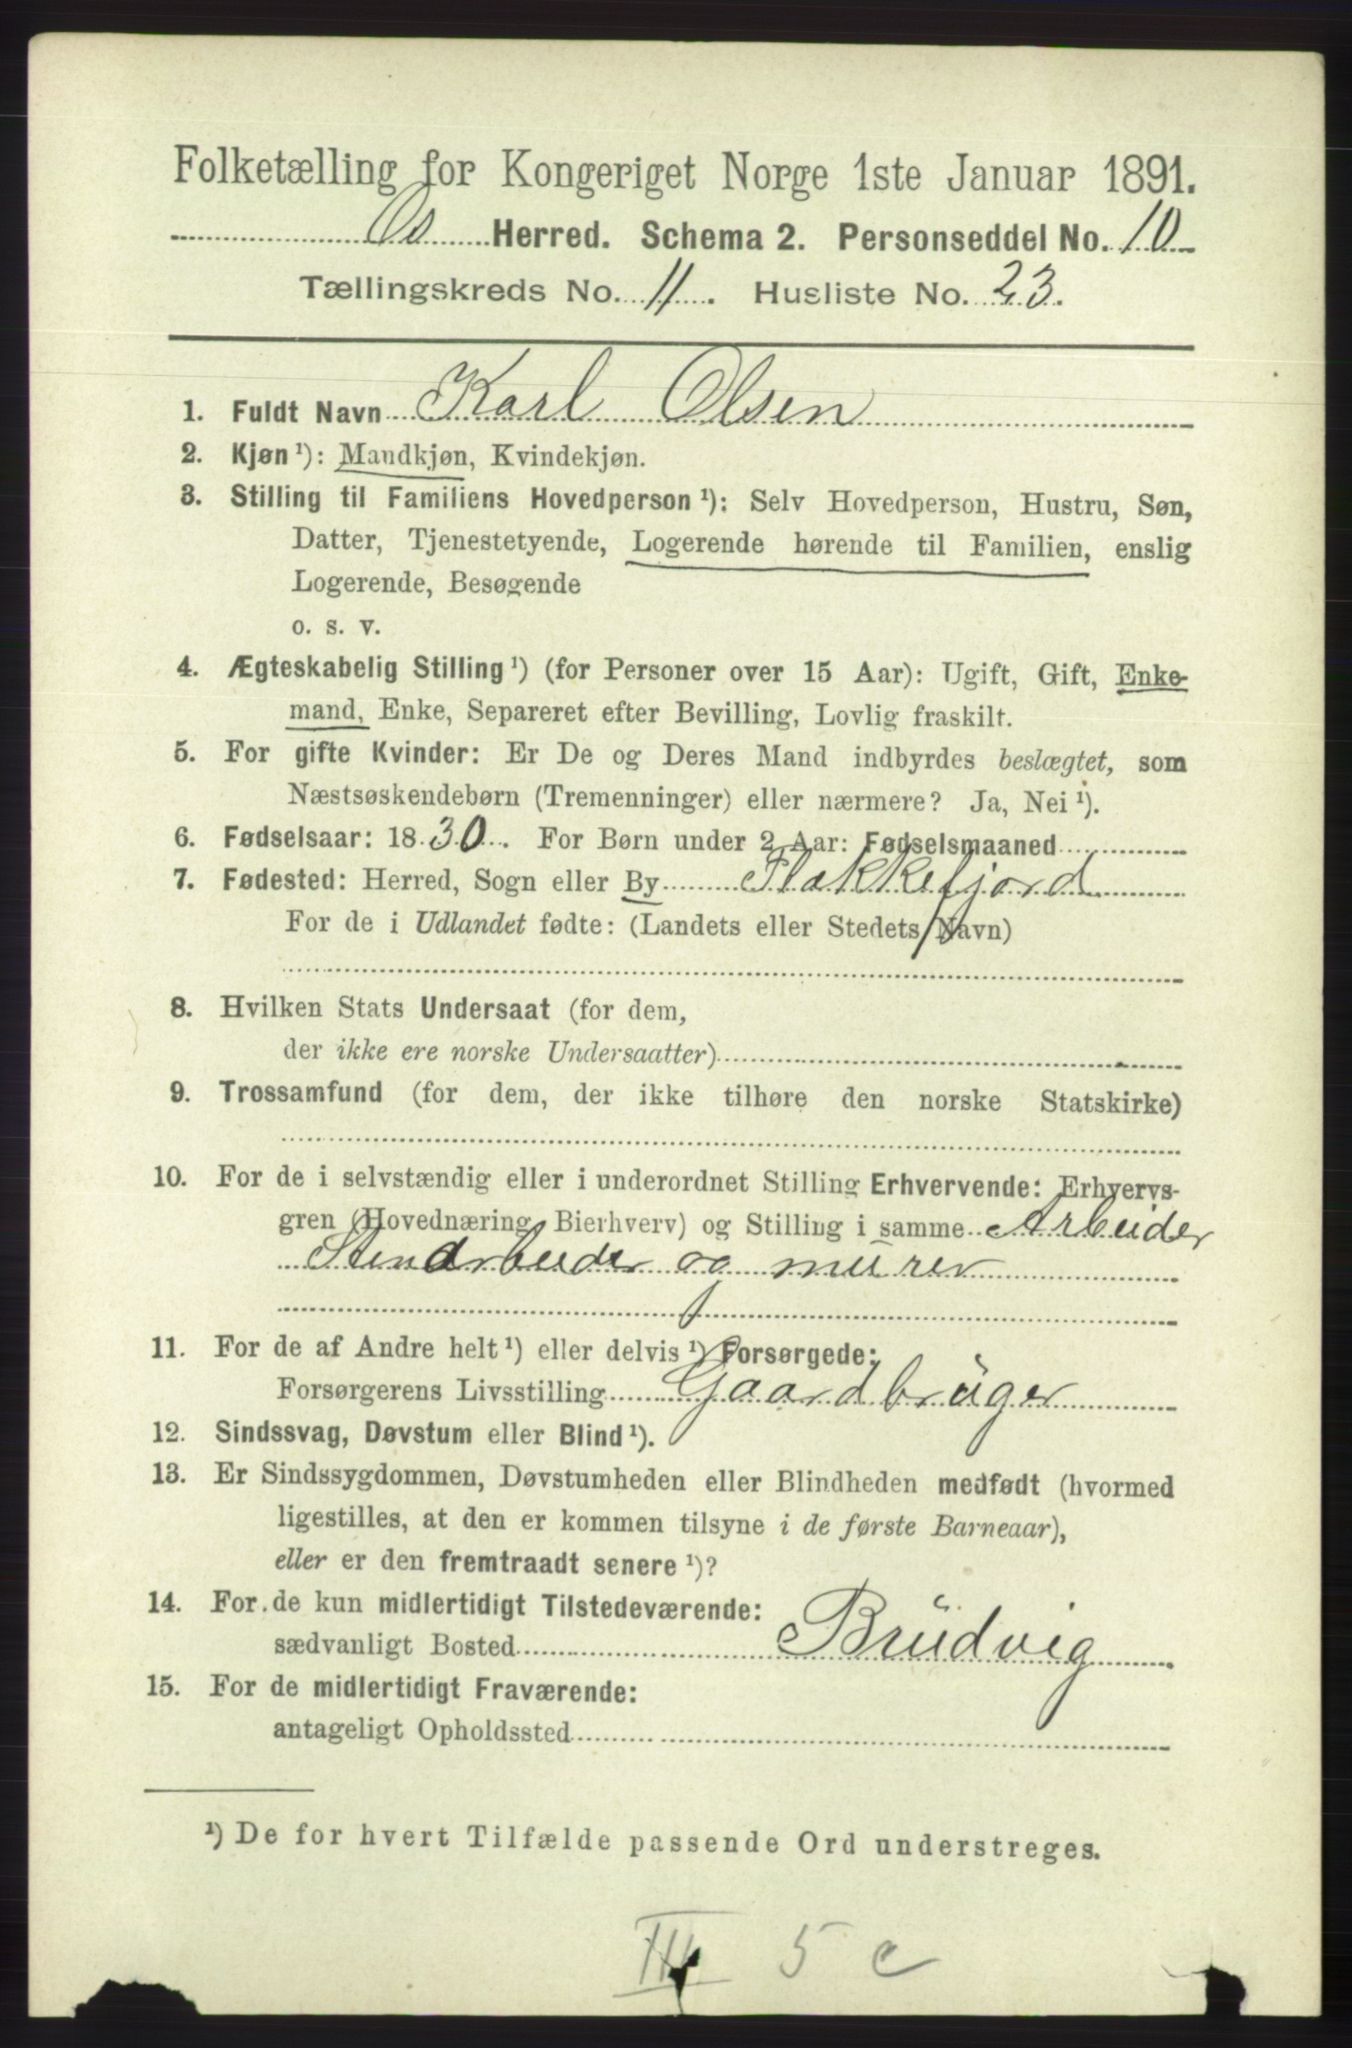 Folketælling for Kongeriget Norge 1ste Januar 1891.
Os Herred. Schema 2. Personseddel No. 10
Tællingskreds No. 11. Husliste No. 23.
1. Fuldt Navn Karl Olsen
2. Kjøn ¹): Mandkjøn, Kvindekjøn.
3. Stilling til Familiens Hovedperson ¹): Selv Hovedperson, Hustru, Søn,
Datter, Tjenestetyende, Logerende hørende til Familien, enslig
Logerende, Besøgende
o. s. v.
4. Ægteskabelig Stilling ¹) (for Personer over 15 Aar): Ugift, Gift, Enke-
mand, Enke, Separeret efter Bevilling, Lovlig fraskilt.
5. For gifte Kvinder: Er De og Deres Mand indbyrdes beslægtet, som
Næstsøskendebørn (Tremenninger) eller nærmere? Ja, Nei ¹).
6. Fødselsaar: 1830. For Børn under 2 Aar: Fødselsmaaned
7. Fødested: Herred, Sogn eller By Flakkefjord
For de i Udlandet fødte: (Landets eller Stedets Navn)
8. Hvilken Stats Undersaat (for dem,
der ikke ere norske Undersaatter)
9. Trossamfund (for dem, der ikke tilhøre den norske Statskirke)
10. For de i selvstændig eller i underordnet Stilling Erhvervende: Erhvervs-
gren (Hovednæring, Bierhverv) og Stilling i samme Arbeider
Stenarbeider og murer
11. For de af Andre helt ¹) eller delvis ¹) Forsørgede:
Forsørgerens Livsstilling Gaardbrüger
12. Sindssvag, Døvstum eller Blind ¹).
13. Er Sindssygdommen, Døvstumheden eller Blindheden medfødt (hvormed
ligestilles, at den er kommen tilsyne i de første Barneaar),
eller er den fremtraadt senere ¹)?
14. For de kun midlertidigt Tilstedeværende:
sædvanligt Bosted Brüdvig
15. For de midlertidigt Fraværende:
antageligt Opholdssted
¹) De for hvert Tilfælde passende Ord understreges.
III 5 c